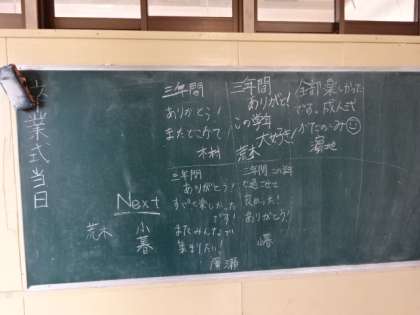 卒業式当日
三年間
ありがとう!
またどこかで
木村
三年間
ありがと!
この学年
大好き!
荒木
全部楽しかった
です。成人式
菊地
三年間
ありがとう!
すごく楽しかった
です!
またみんなで
集まりたい!
廣瀬
三年間この学年
で過ごせて
良かった!
ありがとう!
小暮
Next
荒木
小暮